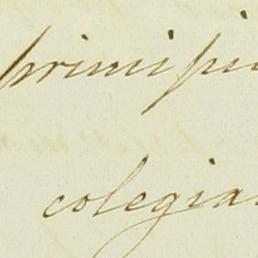 primi pi
colegia